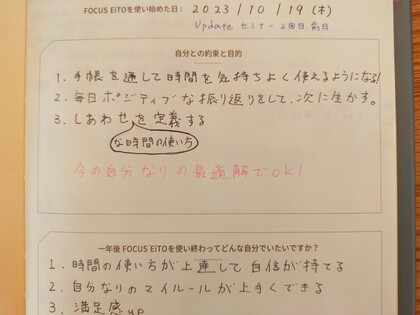 FOCUS EiTOを使い始めた日： 2023/10/19 (木)
Update セミナー2回目 前日
自分との約束と目的
1. 手帳を通して時間を気持ちよく使えるようになる!
2. 毎日ポジティブな振り返りをして、次に生かす。
3. しあわせを定義する
な時間の使い方
今の自分なりの最適解でOK!
一年後 FOCUS EiTOを使い終わってどんな自分でいたいですか？
1. 時間の使い方が上達して自信が持てる
2. 自分なりのマイルールが上手くできる
3. 満足感up